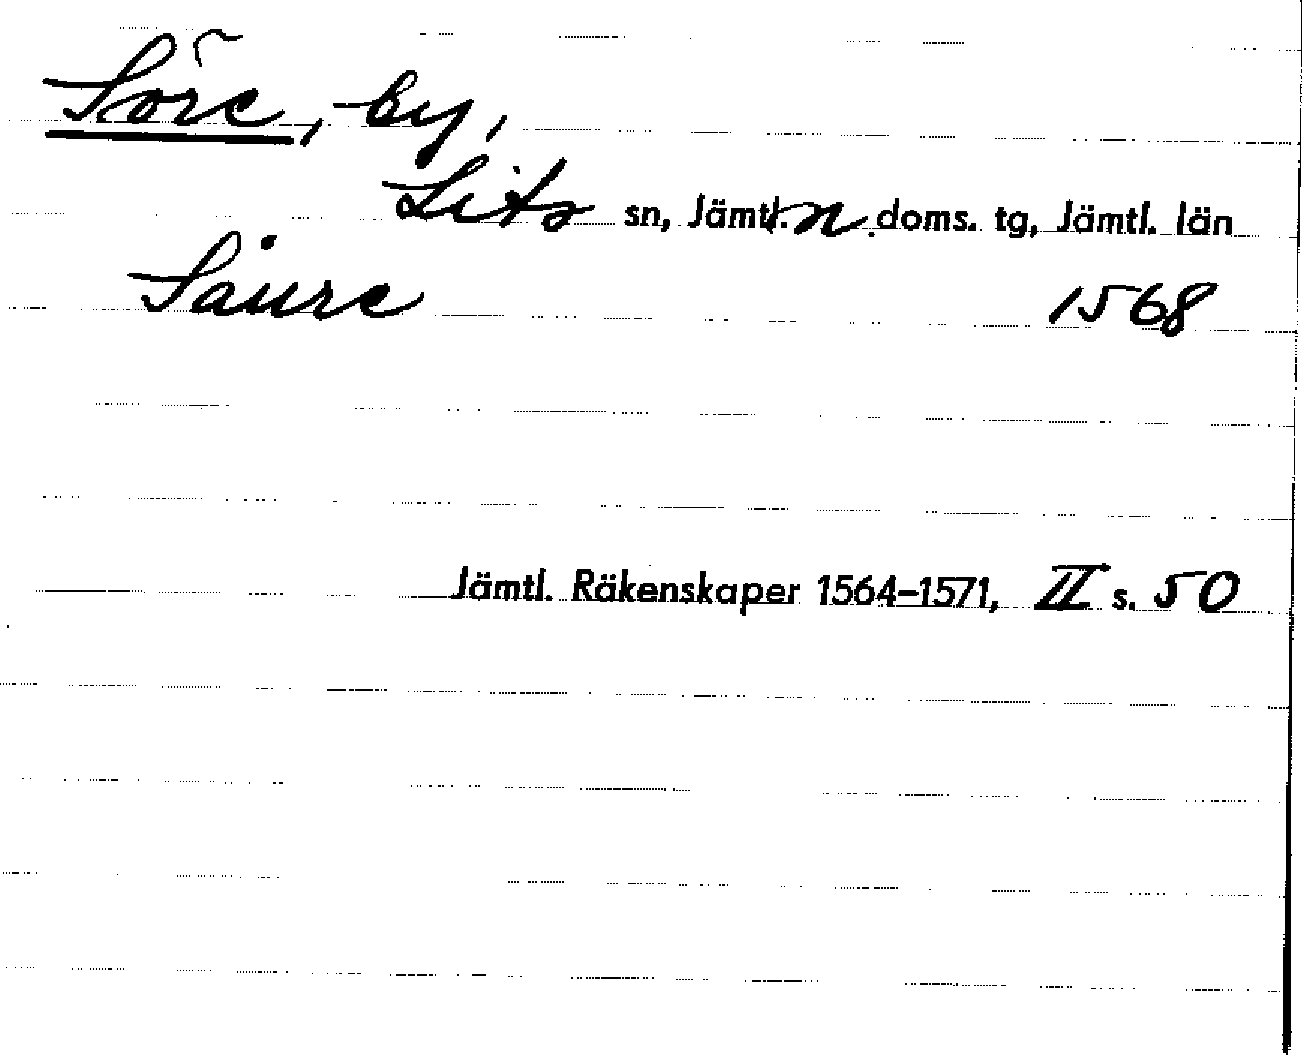 Söre, by,
Lits sn, Jämtl. n. doms. tg, Jämtl. län
Såure 1568
Jämtl. Räkenskaper 1564–1571, II s. 50